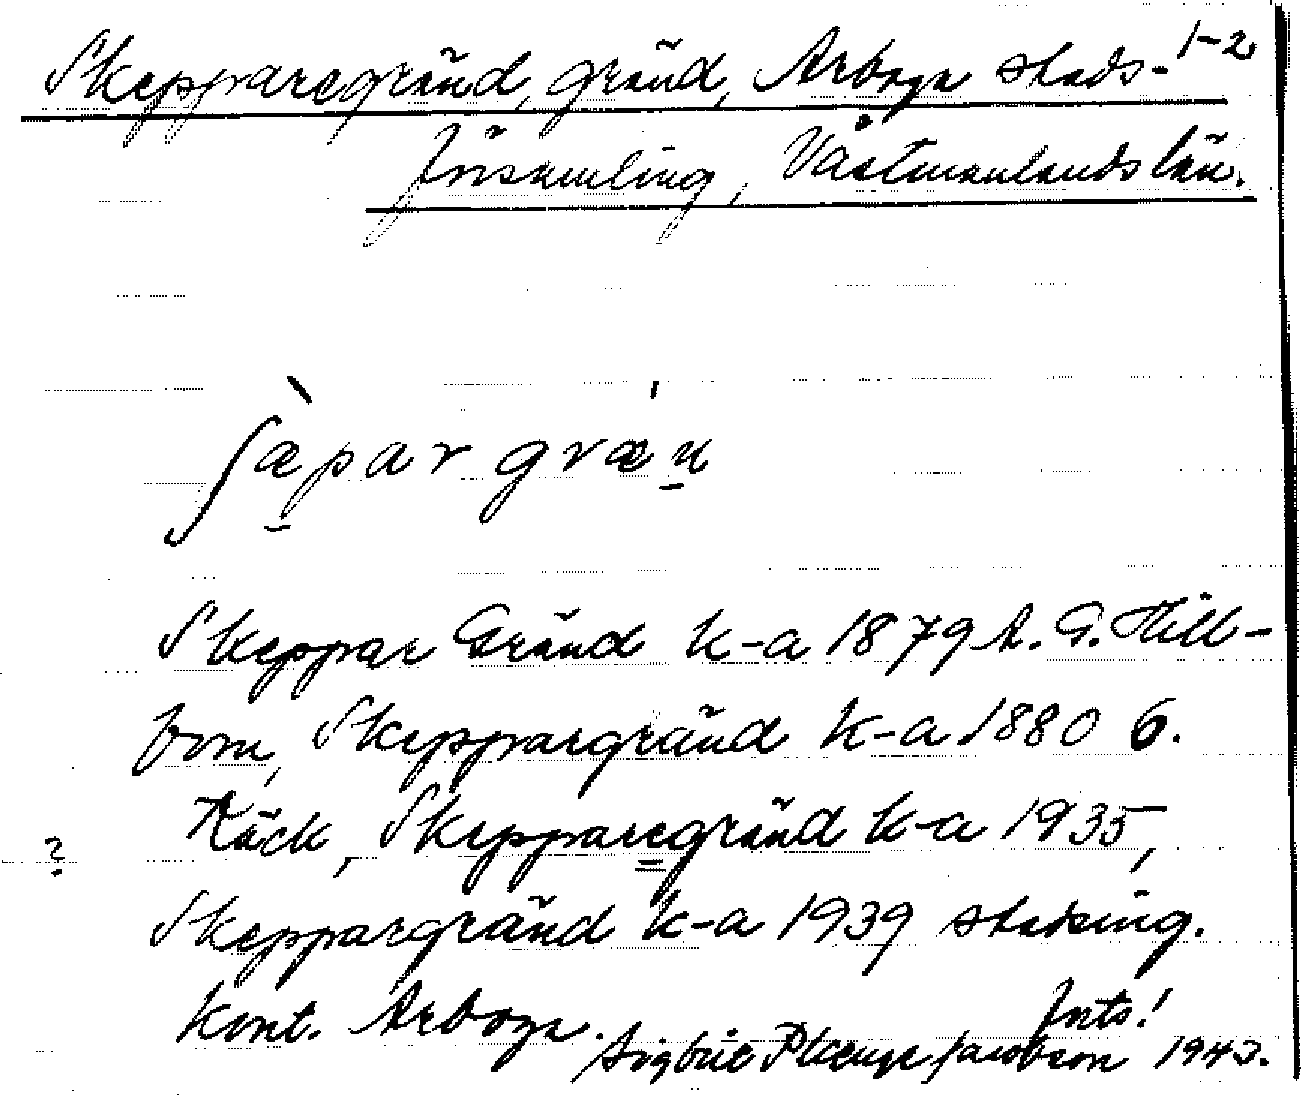 Skepparegränd, gränd, Arboga stads- 1-2
församling, Västmanlands län.
ʃæ̀pargræ̍n
Skeppar Gränd k-a 1879 A. G. Hill-
bom, Skeppargränd k-a 1880 G.
Käck, Skepparegränd k-a 1935,
?
Skeppargränd k-a 1939 stadsing.
kont. Arboga. Forts!
Jacobson 1943.